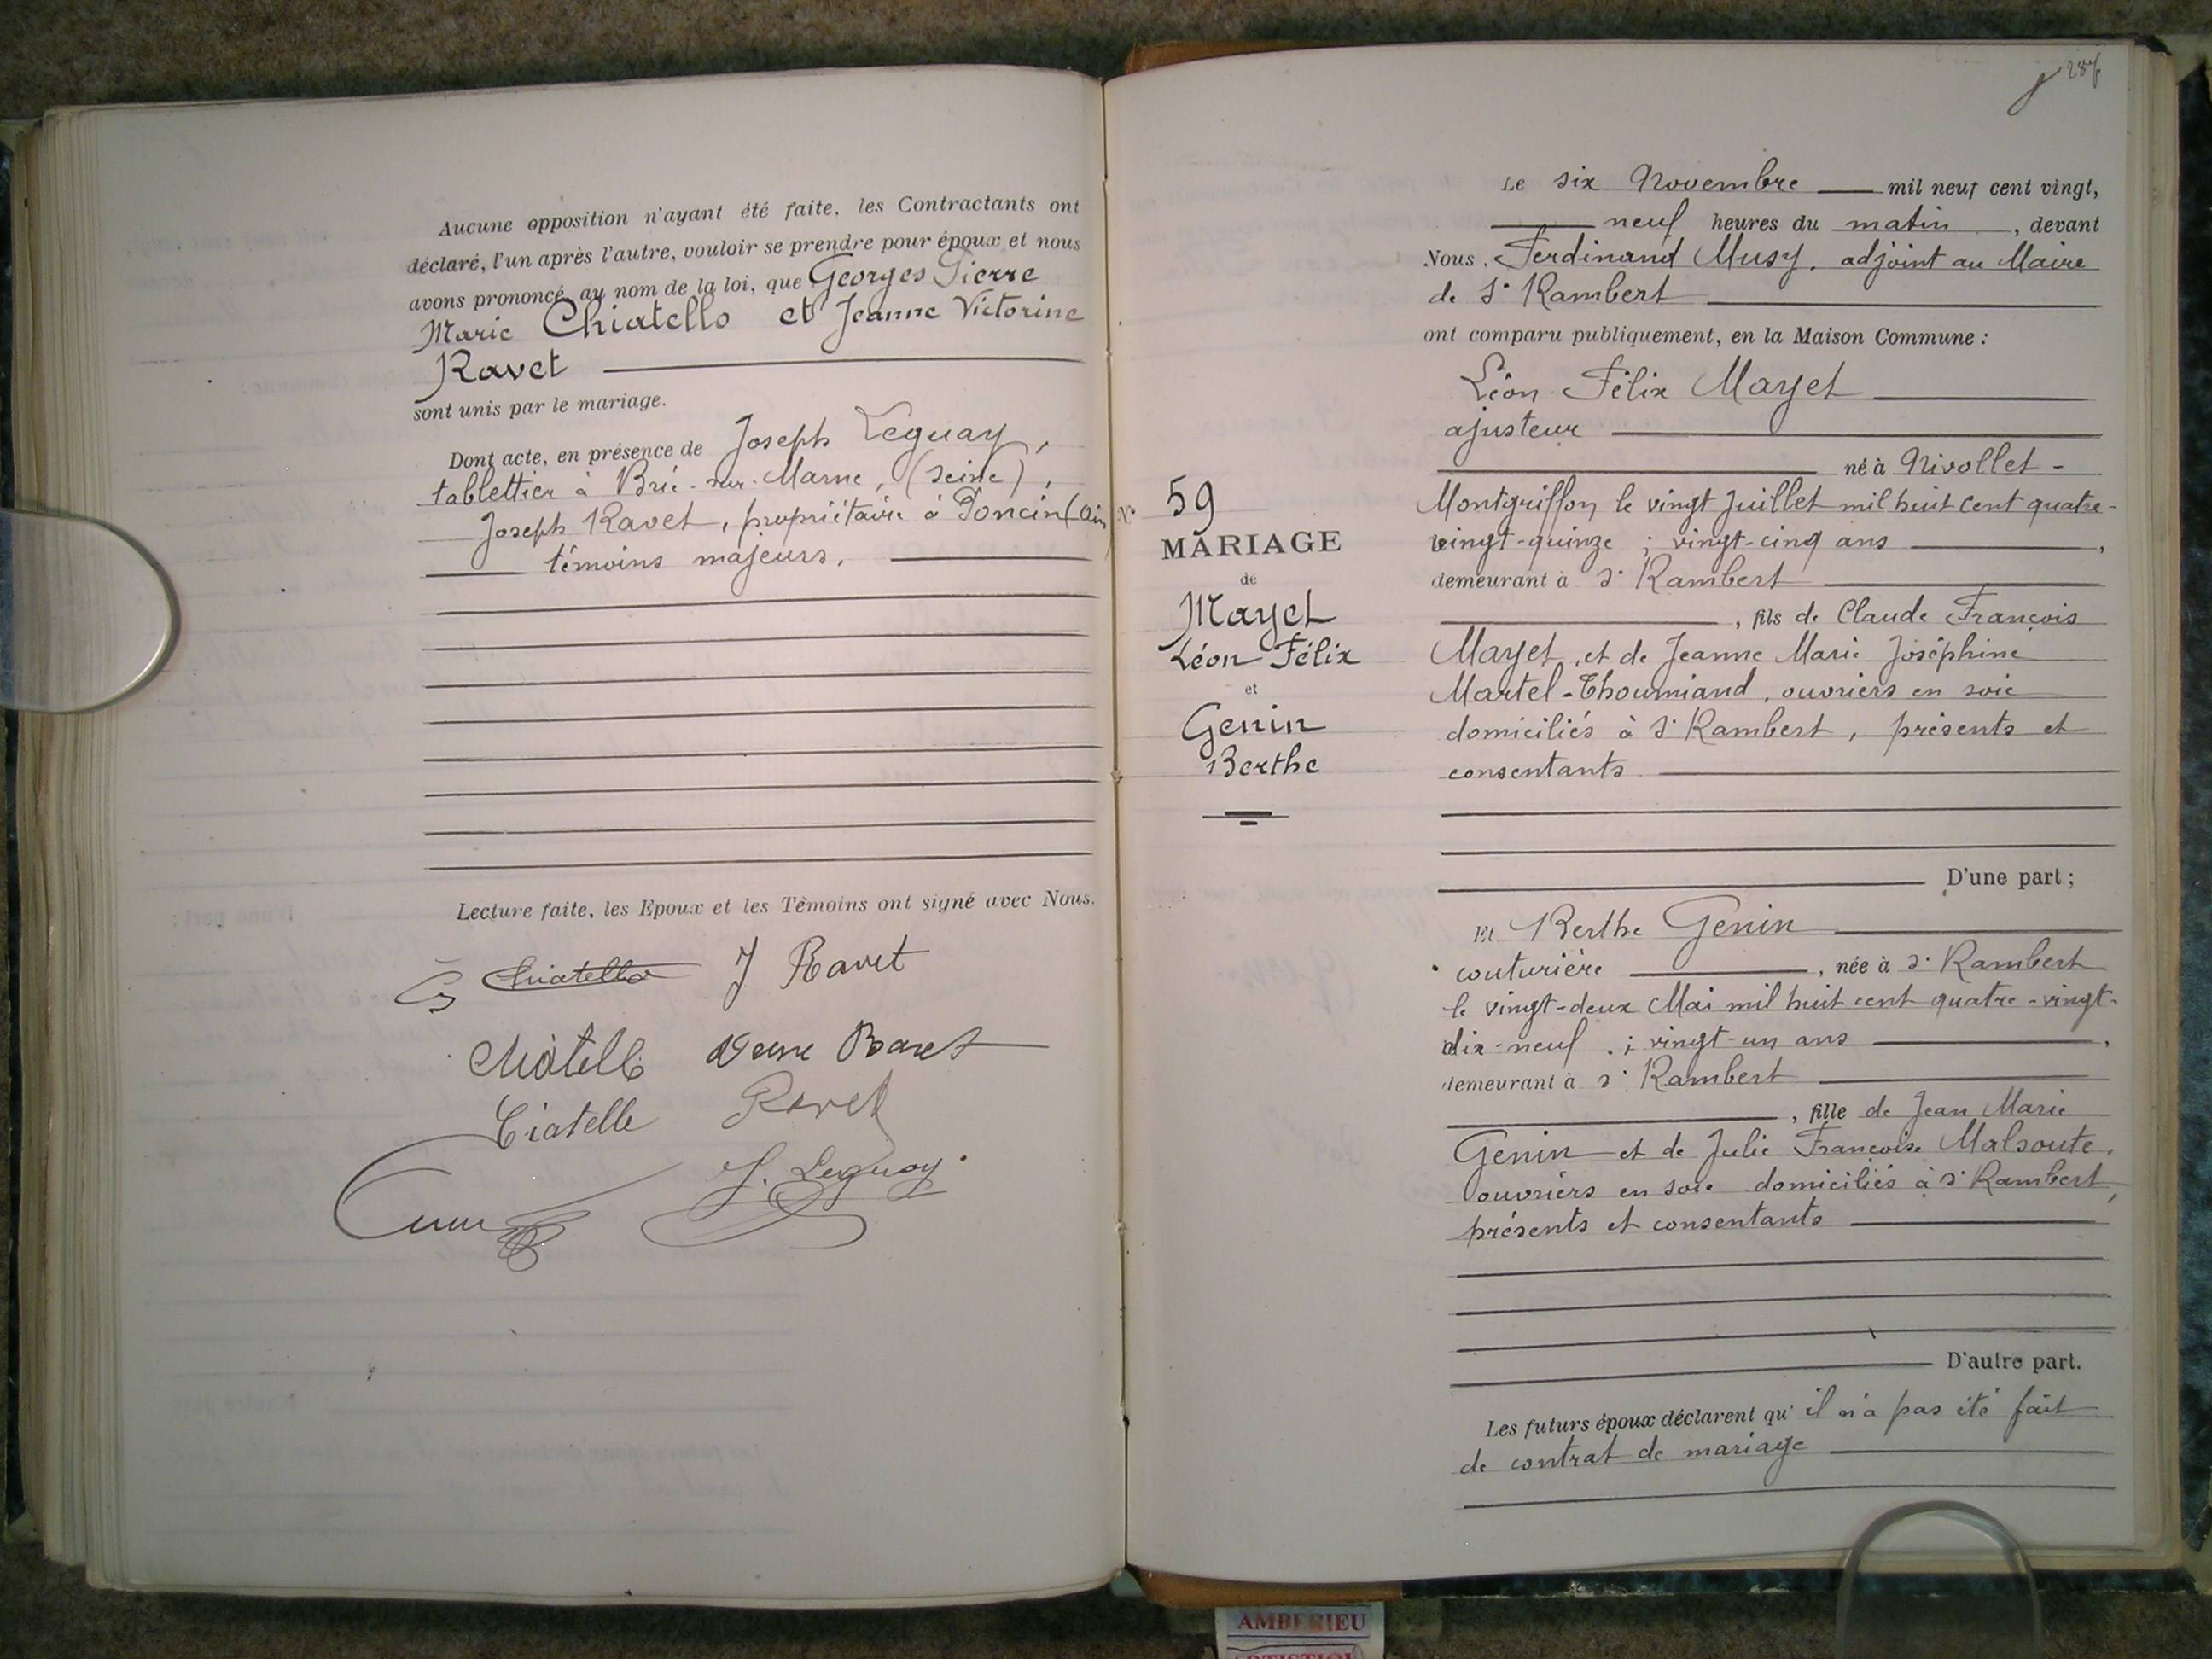 Aucune opposition n'ayant été faite, les Contractants ont
déclaré, l'un après l'autre, vouloir se prendre pour époux et nous
avons prononcé, au nom de la loi, que Georges Pierre
Marie Chiatello et Jeanne Victorine
Ravet
sont unis par le mariage.
Dont acte, en présence de Joseph Leguay,
tablettier à Brié-sur-Marne, (Seine),
Joseph Ravet, propriétaire à Poncin (Ain)
témoins majeurs.
Lecture faite, les Epoux et les Témoins ont signé avec Nous.
Chiatello J Ravet
Chiatello Veuve Ravet
Ciatelle Ravet
J. Leguay
287
N° 59
MARIAGE
de
Mayet
Léon Félix
et
Genin
Berthe
Le six Novembre mil neuf cent vingt,
neuf heures du matin, devant
Nous, Ferdinand Musy, adjoint au Maire
de St Rambert
ont comparu publiquement, en la Maison Commune :
Léon Félix Mayet
ajusteur
né à Nivollet-
Montgriffon le vingt Juillet mil huit cent quatre-
vingt-quinze ; vingt-cinq ans,
demeurant à St Rambert
, fils de Claude François
Mayet, et de Jeanne Marie Joséphine
Martel-Thoumiand, ouvriers en soie
domiciliés à St Rambert, présents et
consentants
D'une part ;
Et Berthe Genin
couturière, née à St Rambert
le vingt-deux Mai mil huit cent quatre-vingt-
dix-neuf ; vingt-un ans,
demeurant à St Rambert
, fille de Jean Marie
Genin et de Julie Françoise Malsoute,
ouvriers en soie domiciliés à St Rambert,
présents et consentants
D'autre part.
Les futurs époux déclarent qu'il n'a pas été fait
de contrat de mariage
AMBERIEU